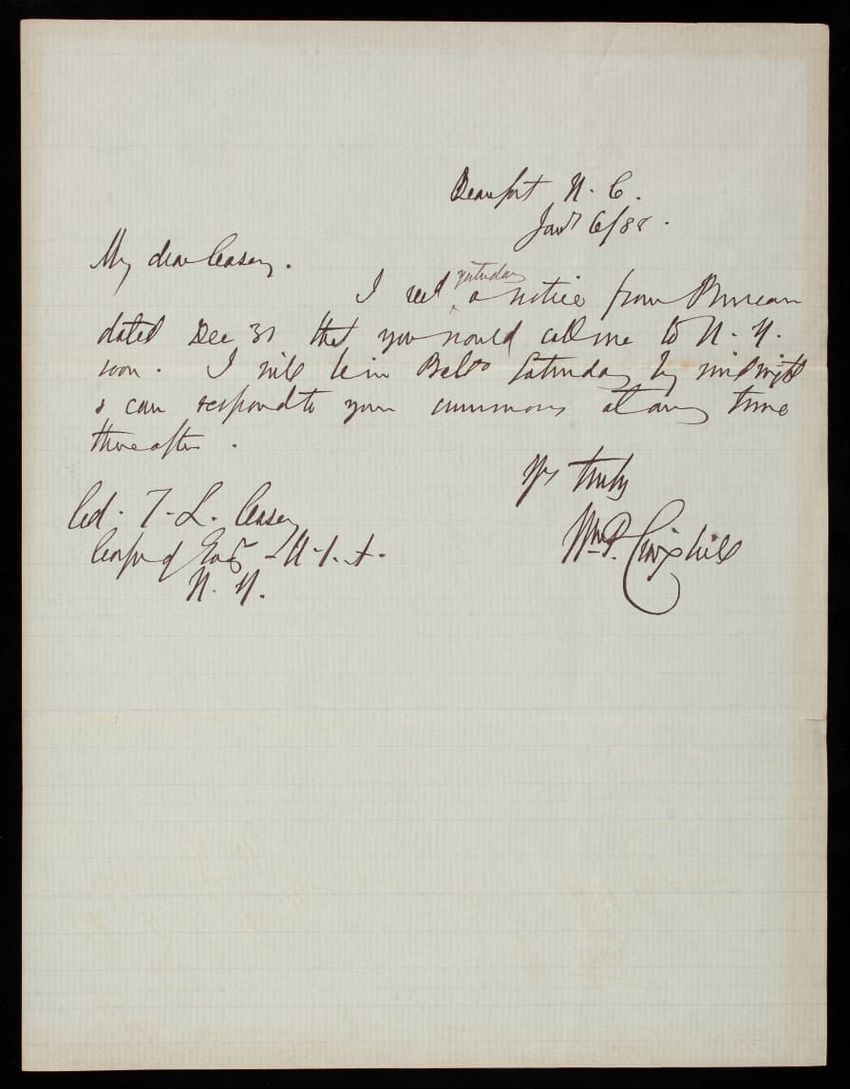 Beaufort N. C.
Jany 6/88.
My dear Casey.
yesterday
I recd a notice from Bureau
dated Dec 31 that you would call me to N. Y.
soon. I will be in Balto Saturday by midnight
& can respond to your summons at any time
thereafter.
Yrs truly
Wm P. Craighill
Col. T. L. Casey
Corps of Engs U.S.A.
N. Y.